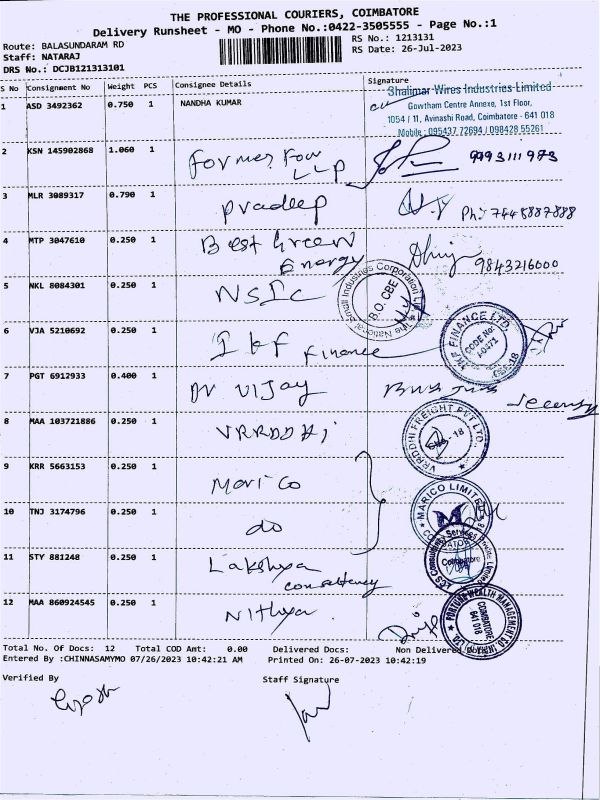 THE PROFESSIONAL COURIERS, COIMBATORE
Delivery Runsheet - MO - Phone No.:0422-3505555 - Page No.:1
Route: BALASUNDARAM RD
RS No.: 1213131
Staff: NATARAJ
RS Date: 26-Jul-2023
DRS No.: DCJB121313101
S No Consignment No Weight PCS Consignee Details Signature
1 ASD 3492362 0.750 1 NANDHA KUMAR
Shalimar Wires Industries Limited
Gowtham Centre Annexe, 1st Floor,
1054 / 11, Avinashi Road, Coimbatore - 641 018
Mobile : 095437 72694 / 098428 55261
2 KSN 145902868 1.060 1 LLP 9993111973
3 MLR 3089317 0.790 1 Pradeep Ph: 7448887888
4 MTP 3047610 0.250 1 Best Green Energy 9843216000
5 NKL 8084301 0.250 1 NSIC
The National Small Industries Corporation Ltd
B.O. CBE
6 VJA 5210692 0.250 1 Ikf Finance
IKF FINANCE LTD.
CODE No:
CBE-18
7 PGT 6912933 0.400 1 Dr Vijay Security
8 MAA 103721886 0.250 1 VRRDDHi
VRRDDHI FREIGHT PVT LTD.
CBE - 18
9 KRR 5663153 0.250 1 Marico
MARICO LIMITED
10 TNJ 3174796 0.250 1 do
11 STY 881248 0.250 1 Lakshya consultency
LCS Consultancy Services Private Limited
Coimbatore
12 MAA 860924545 0.250 1 Nithya
FORTUNE WEALTH MANAGEMENT CO INDIA (P) LTD.
COIMBATORE
641 018
Total No. Of Docs: 12 Total COD Amt: 0.00 Delivered Docs: Non Delivered
Entered By :CHINNASAMYMO 07/26/2023 10:42:21 AM Printed On: 26-07-2023 10:42:19
Verified By Staff Signature